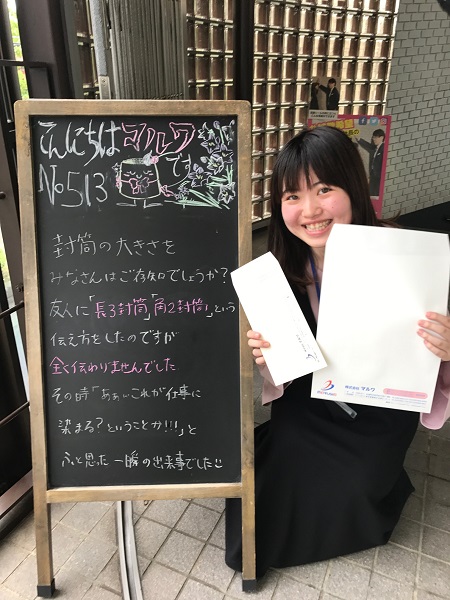 こんにちは マルワ です
No513
封筒の大きさを
みなさんはご存知でしょうか?
友人に「長3封筒」「角2封筒」という
伝え方をしたのですが
全く伝わりませんでした
その時「あぁ…これが仕事に
染まる?ということか!!!」と
ふと思った一瞬の出来事でした
株式会社 マルワ